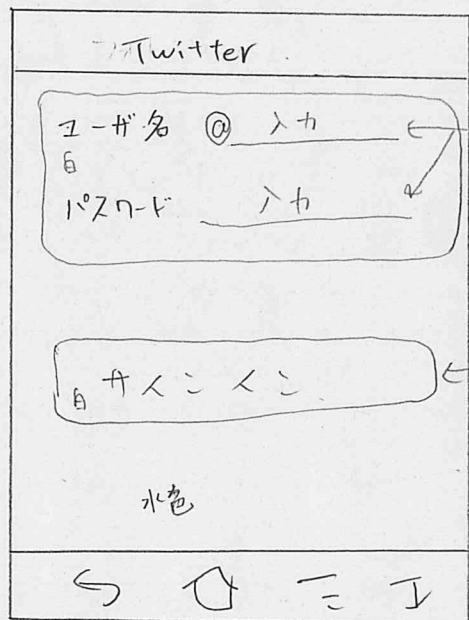 Twitter
ユーザ名 @ 入力
白
パスワード 入力
白 サインイン
水色